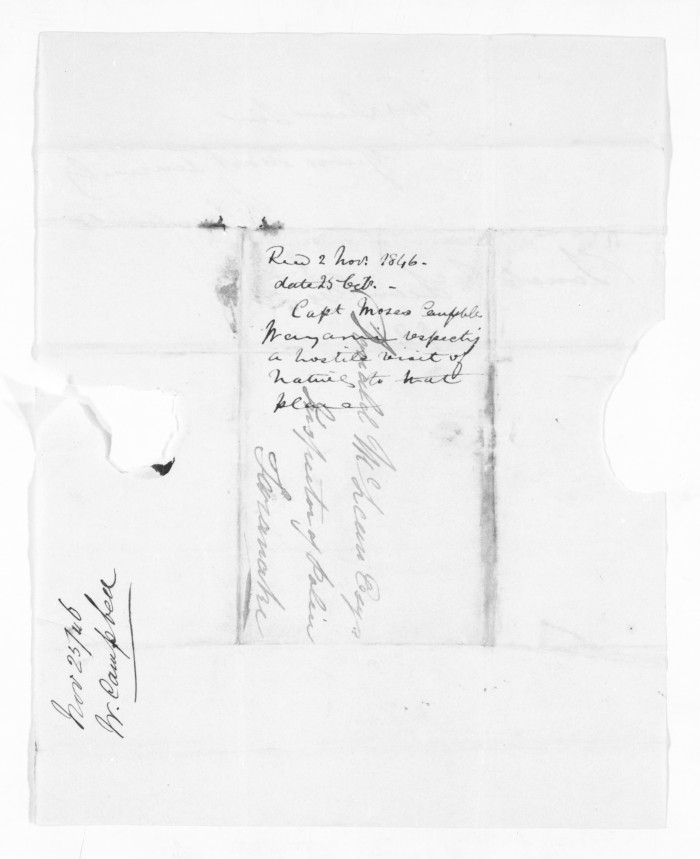 Recd 2 Nov. 1846 -
date 25 Octr. -
Capt Moses Campble
Wanganui respecting
a hostile visit of
Natives to that
place
Donald McLean Esqre
Inspector of Police
Taranaki
Nov 25/46
W. Campbell